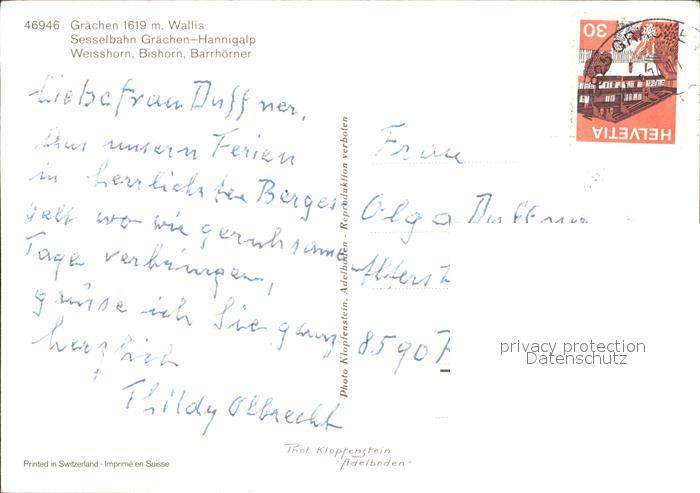 46946 Grächen 1619 m. Wallis
Sesselbahn Grächen-Hannigalp
Weisshorn, Bishorn, Barrhörner
Liebe Frau Duffner,
Aus unsern Ferien
in herrlichster Berges
welt wo wir geruhsame
Tage verbringen,
grüsse ich Sie ganz
herzlich
Thildy Olbrecht
Photo Klopfenstein. Adelboden - Reproduktion verboten
30
HELVETIA
Frau
Olga Duffner
8590
privacy protection
Datenschutz
Phot. Klopfenstein
"Adelboden"
Printed in Switzerland - Imprimé en Suisse